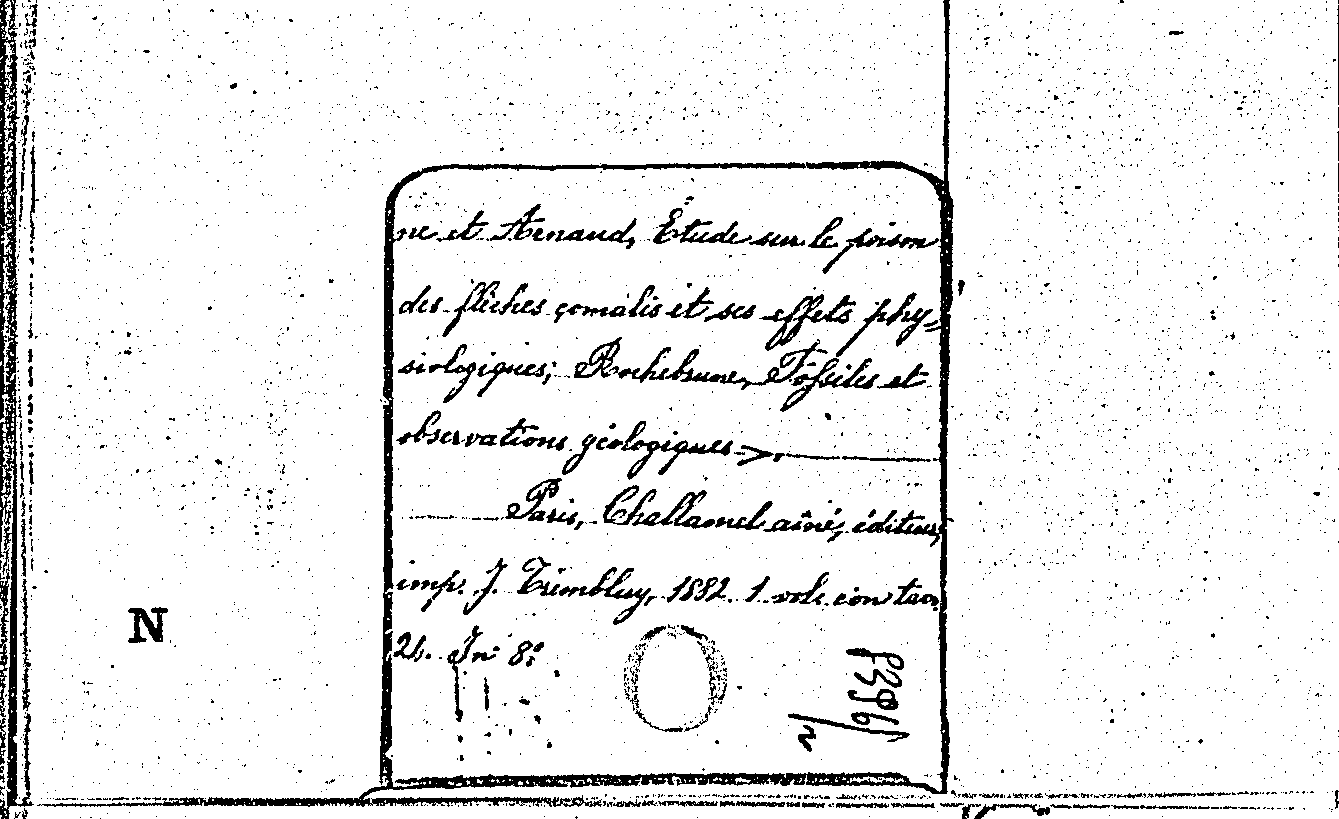 ne et Arnaud, Étude sur le poison
des flêches çomalis et ses effets phy=
siologiques; Rochebrune, Fossiles et
observations géologiques >.
Paris, Challamel aîné, éditeur;
imp. J. Trembluy, 1882. 1 vol. con tav.
24. In 8º
N